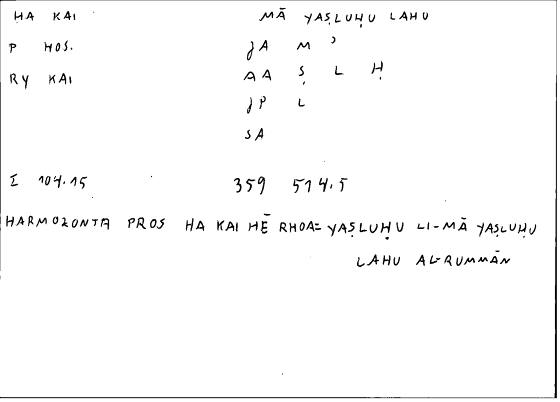 HA KAI MĀ YAṢLUḤU LAHU
P HOS. JA M ʾ
RY KAI AA Ṣ L Ḥ
JP L
SA
Σ 104.15 359 514.5
HARMOZONTA PROS HA KAI HĒ RHOA= YAṢLUḤU LI-MĀ YAṢLUḤU
LAHU AL-RUMMĀN